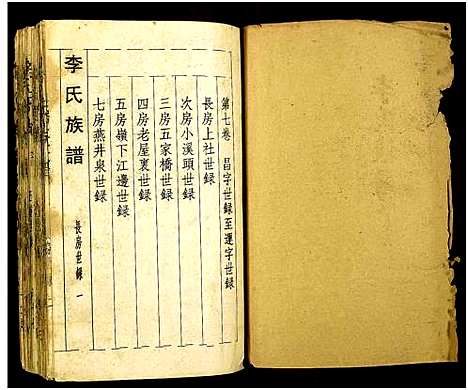 第七卷 昌字世録至運字世録
長房上社世録
次房小溪頭世録
三房五家橋世録
四房老屋裏世録
五房嶺下江邊世録
七房燕井泉世録
李氏族譜
長房世録 一